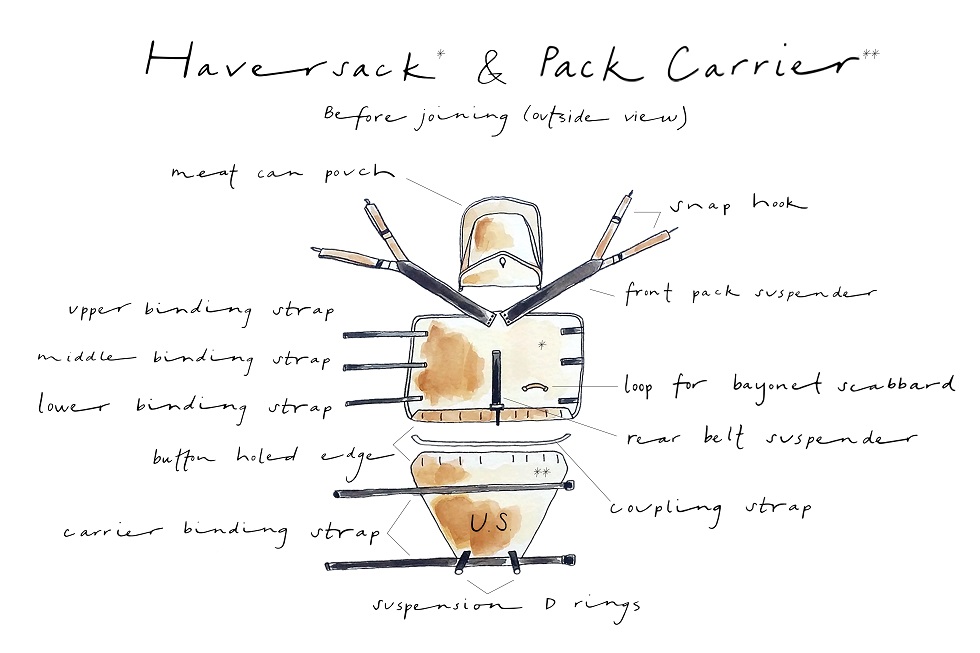 Haversack* & Pack Carrier**
Before joining (outside view)
meat can pouch
snap hook
front pack suspender
upper binding strap
middle binding strap
*
loop for bayonet scabbard
lower binding strap
rear belt suspender
button holed edge
**
coupling strap
U.S.
carrier binding strap
suspension D rings